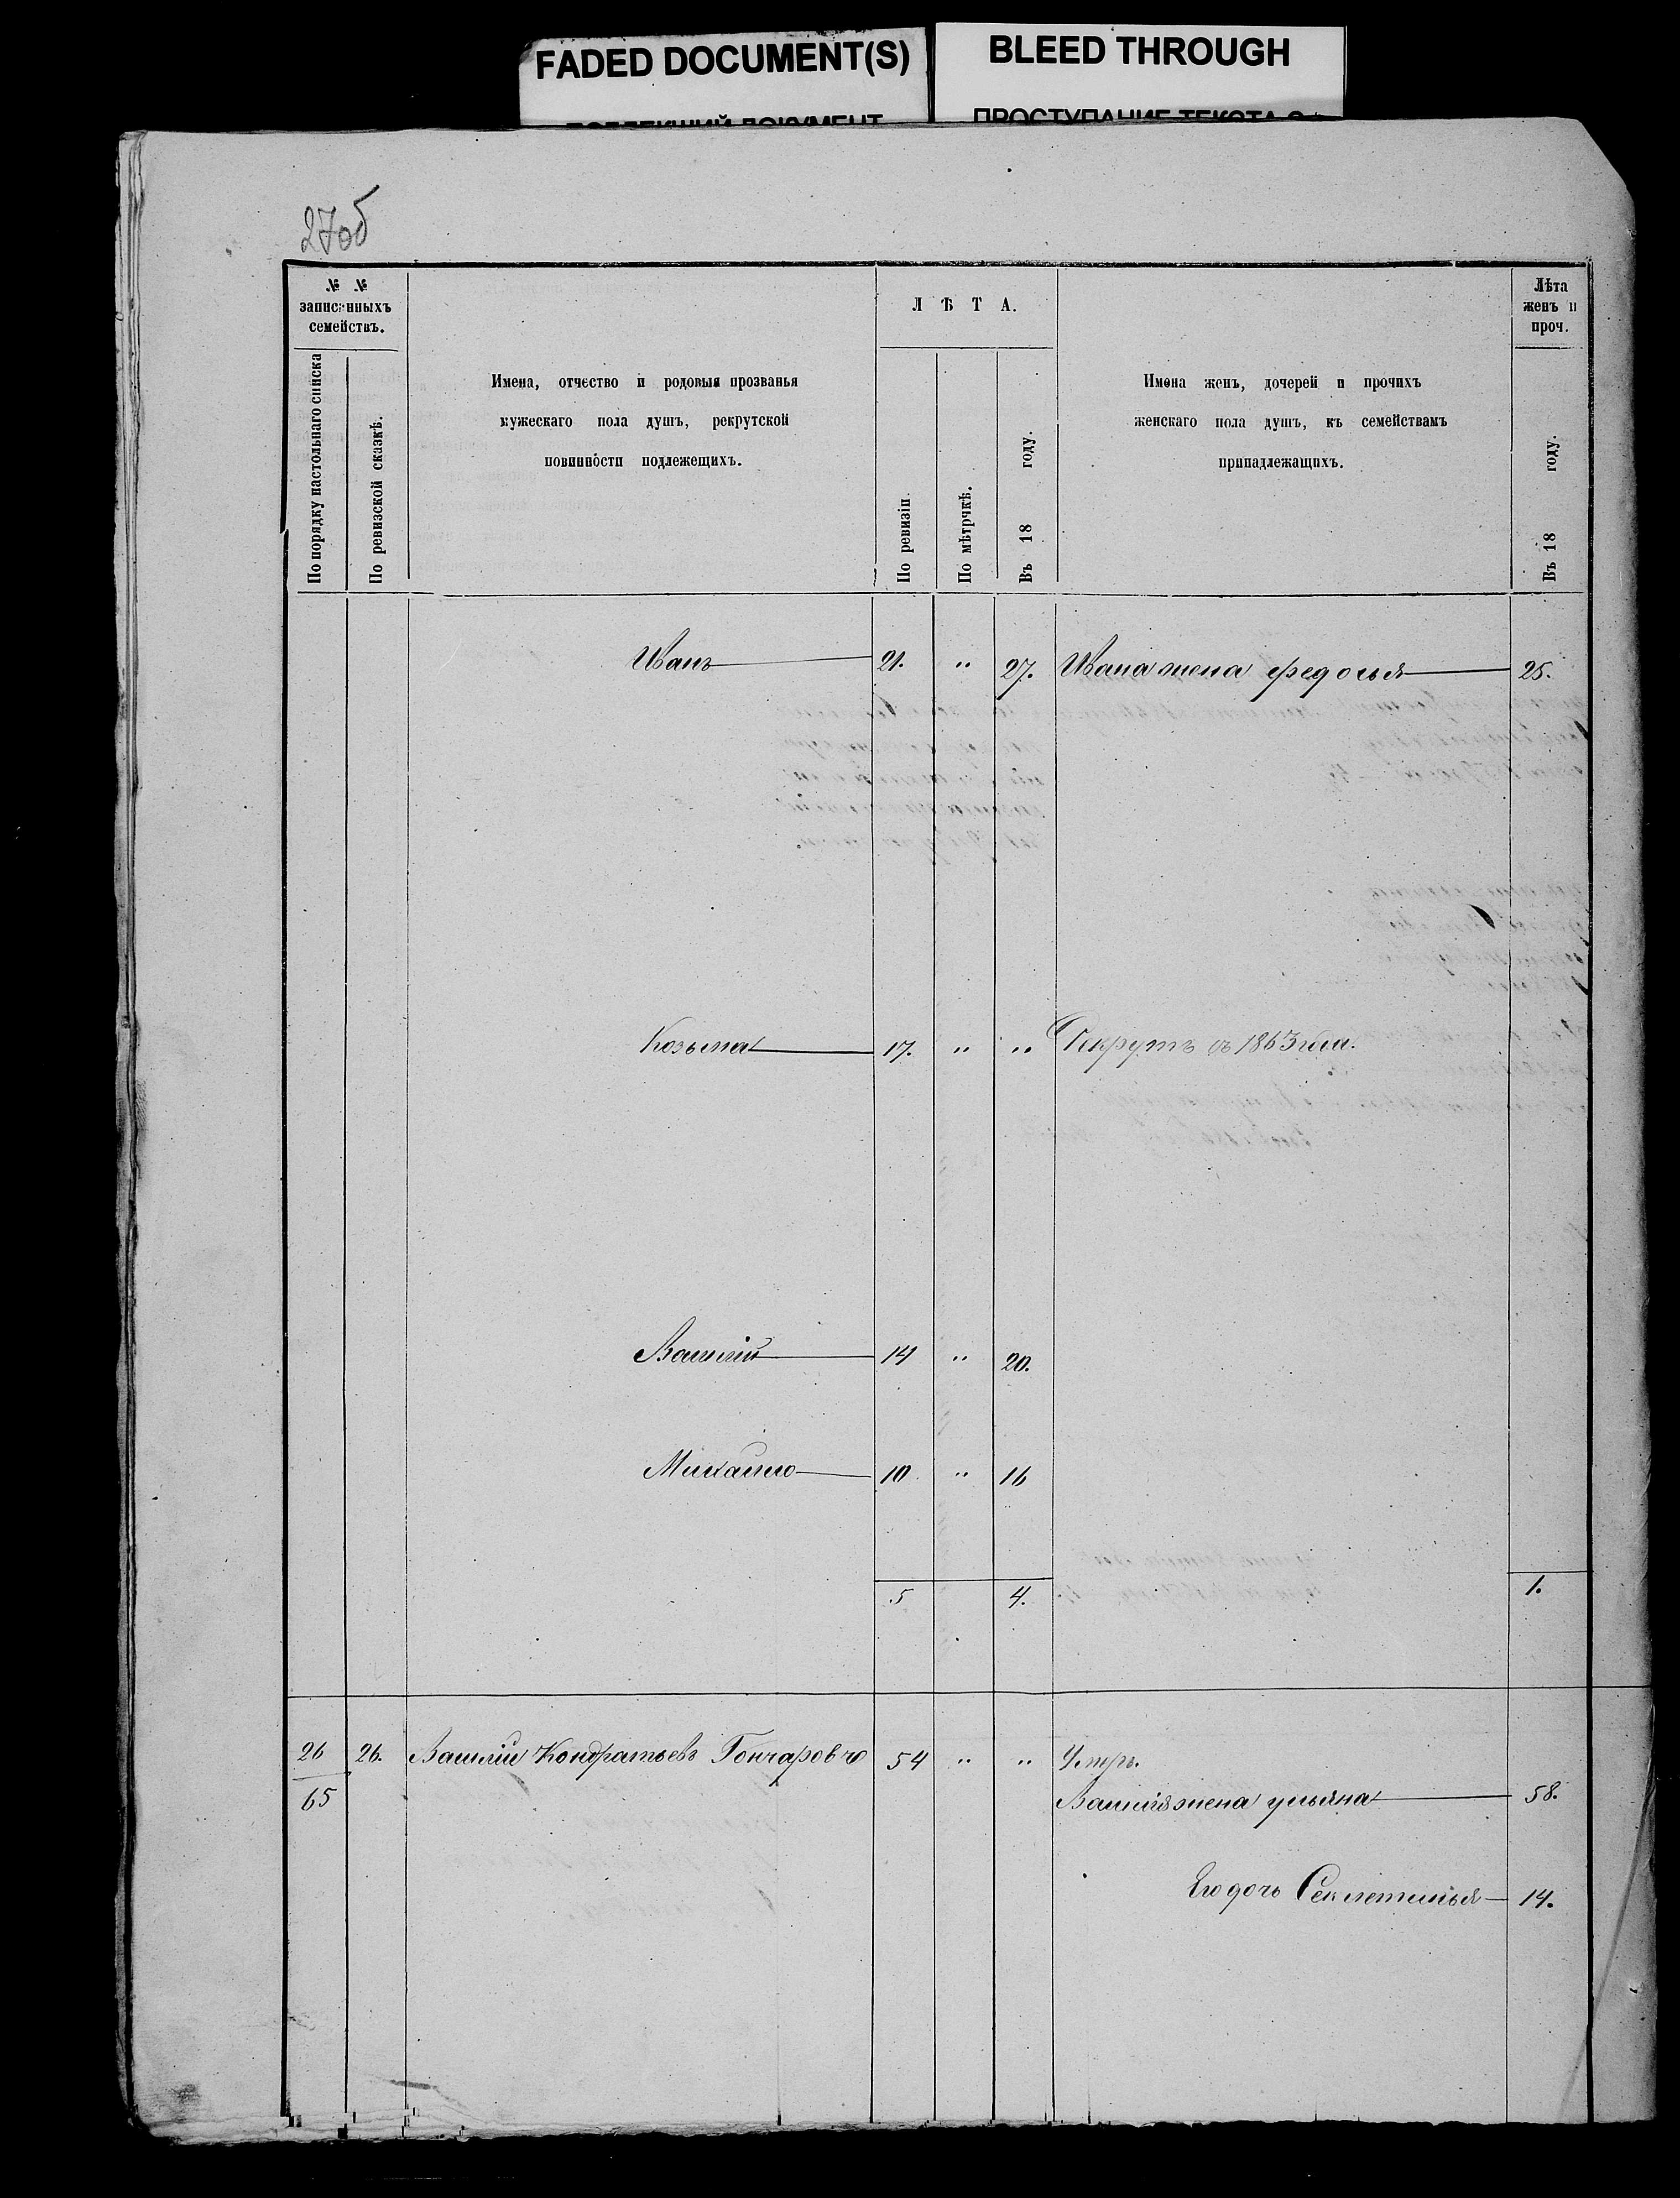 FADED DOCUMENT(S)
BLEED THROUGH
27об
№ №
записанныхъ
семействъ.
По порядку настольнаго списка
По ревизской сказкѣ.
Имена, отчество и родовыя прозванья
мужескаго пола душъ, рекрутской
повинности подлежещихъ.
ЛѢТА.
По ревизіи
По мѣтрчкѣ.
Въ 18 году.
Имена женъ, дочерей и прочихъ
женскаго пола душъ, къ семействамъ
принадлежащихъ.
Лѣта
женъ и
проч.
Въ 18 году.
Иванъ 21. " 27. Ивана жена Федосья 25.
Козьма 17. " " Рекрутъ съ 1863 года.
Василій 14 " 20.
Михайло 10 " 16
5 4. 1.
26 26. Василій Кондратьевъ Гончаров 54 " " Умеръ.
65 Василія жена ульяна 58.
Его дочь Секлетинья 14.